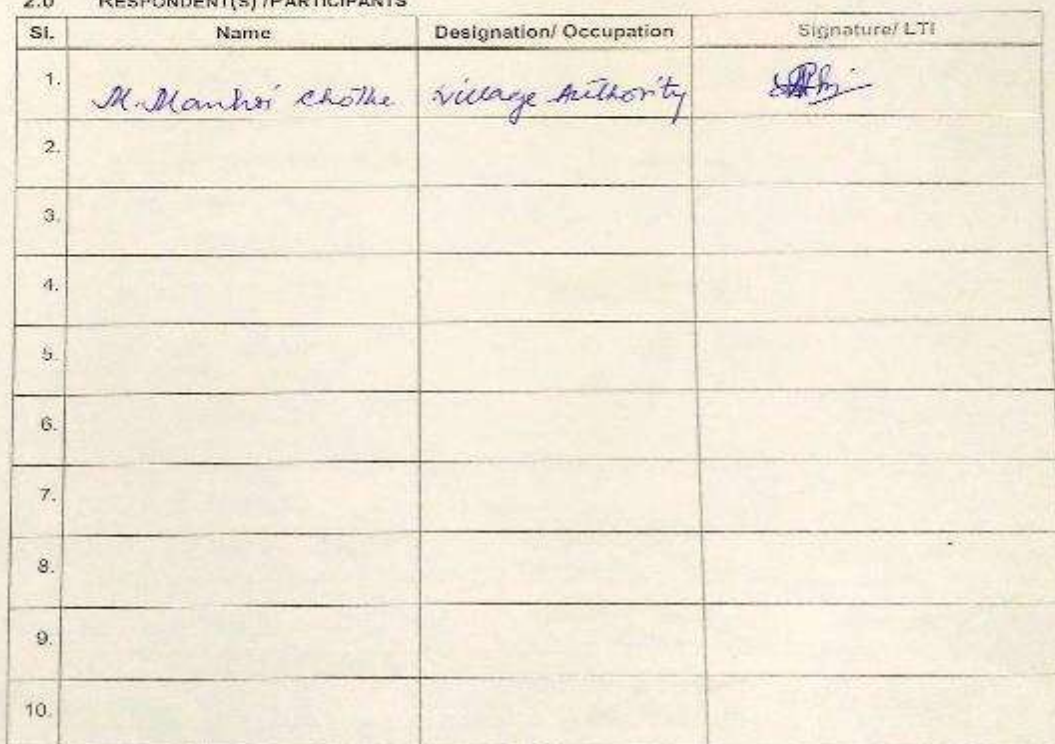 2.0 RESPONDENT(S) /PARTICIPANTS
Sl. Name Designation/ Occupation Signature/ LTI
1. M. Manhoi Chothe Village Authority
2.
3.
4.
5.
6.
7.
8.
9.
10.